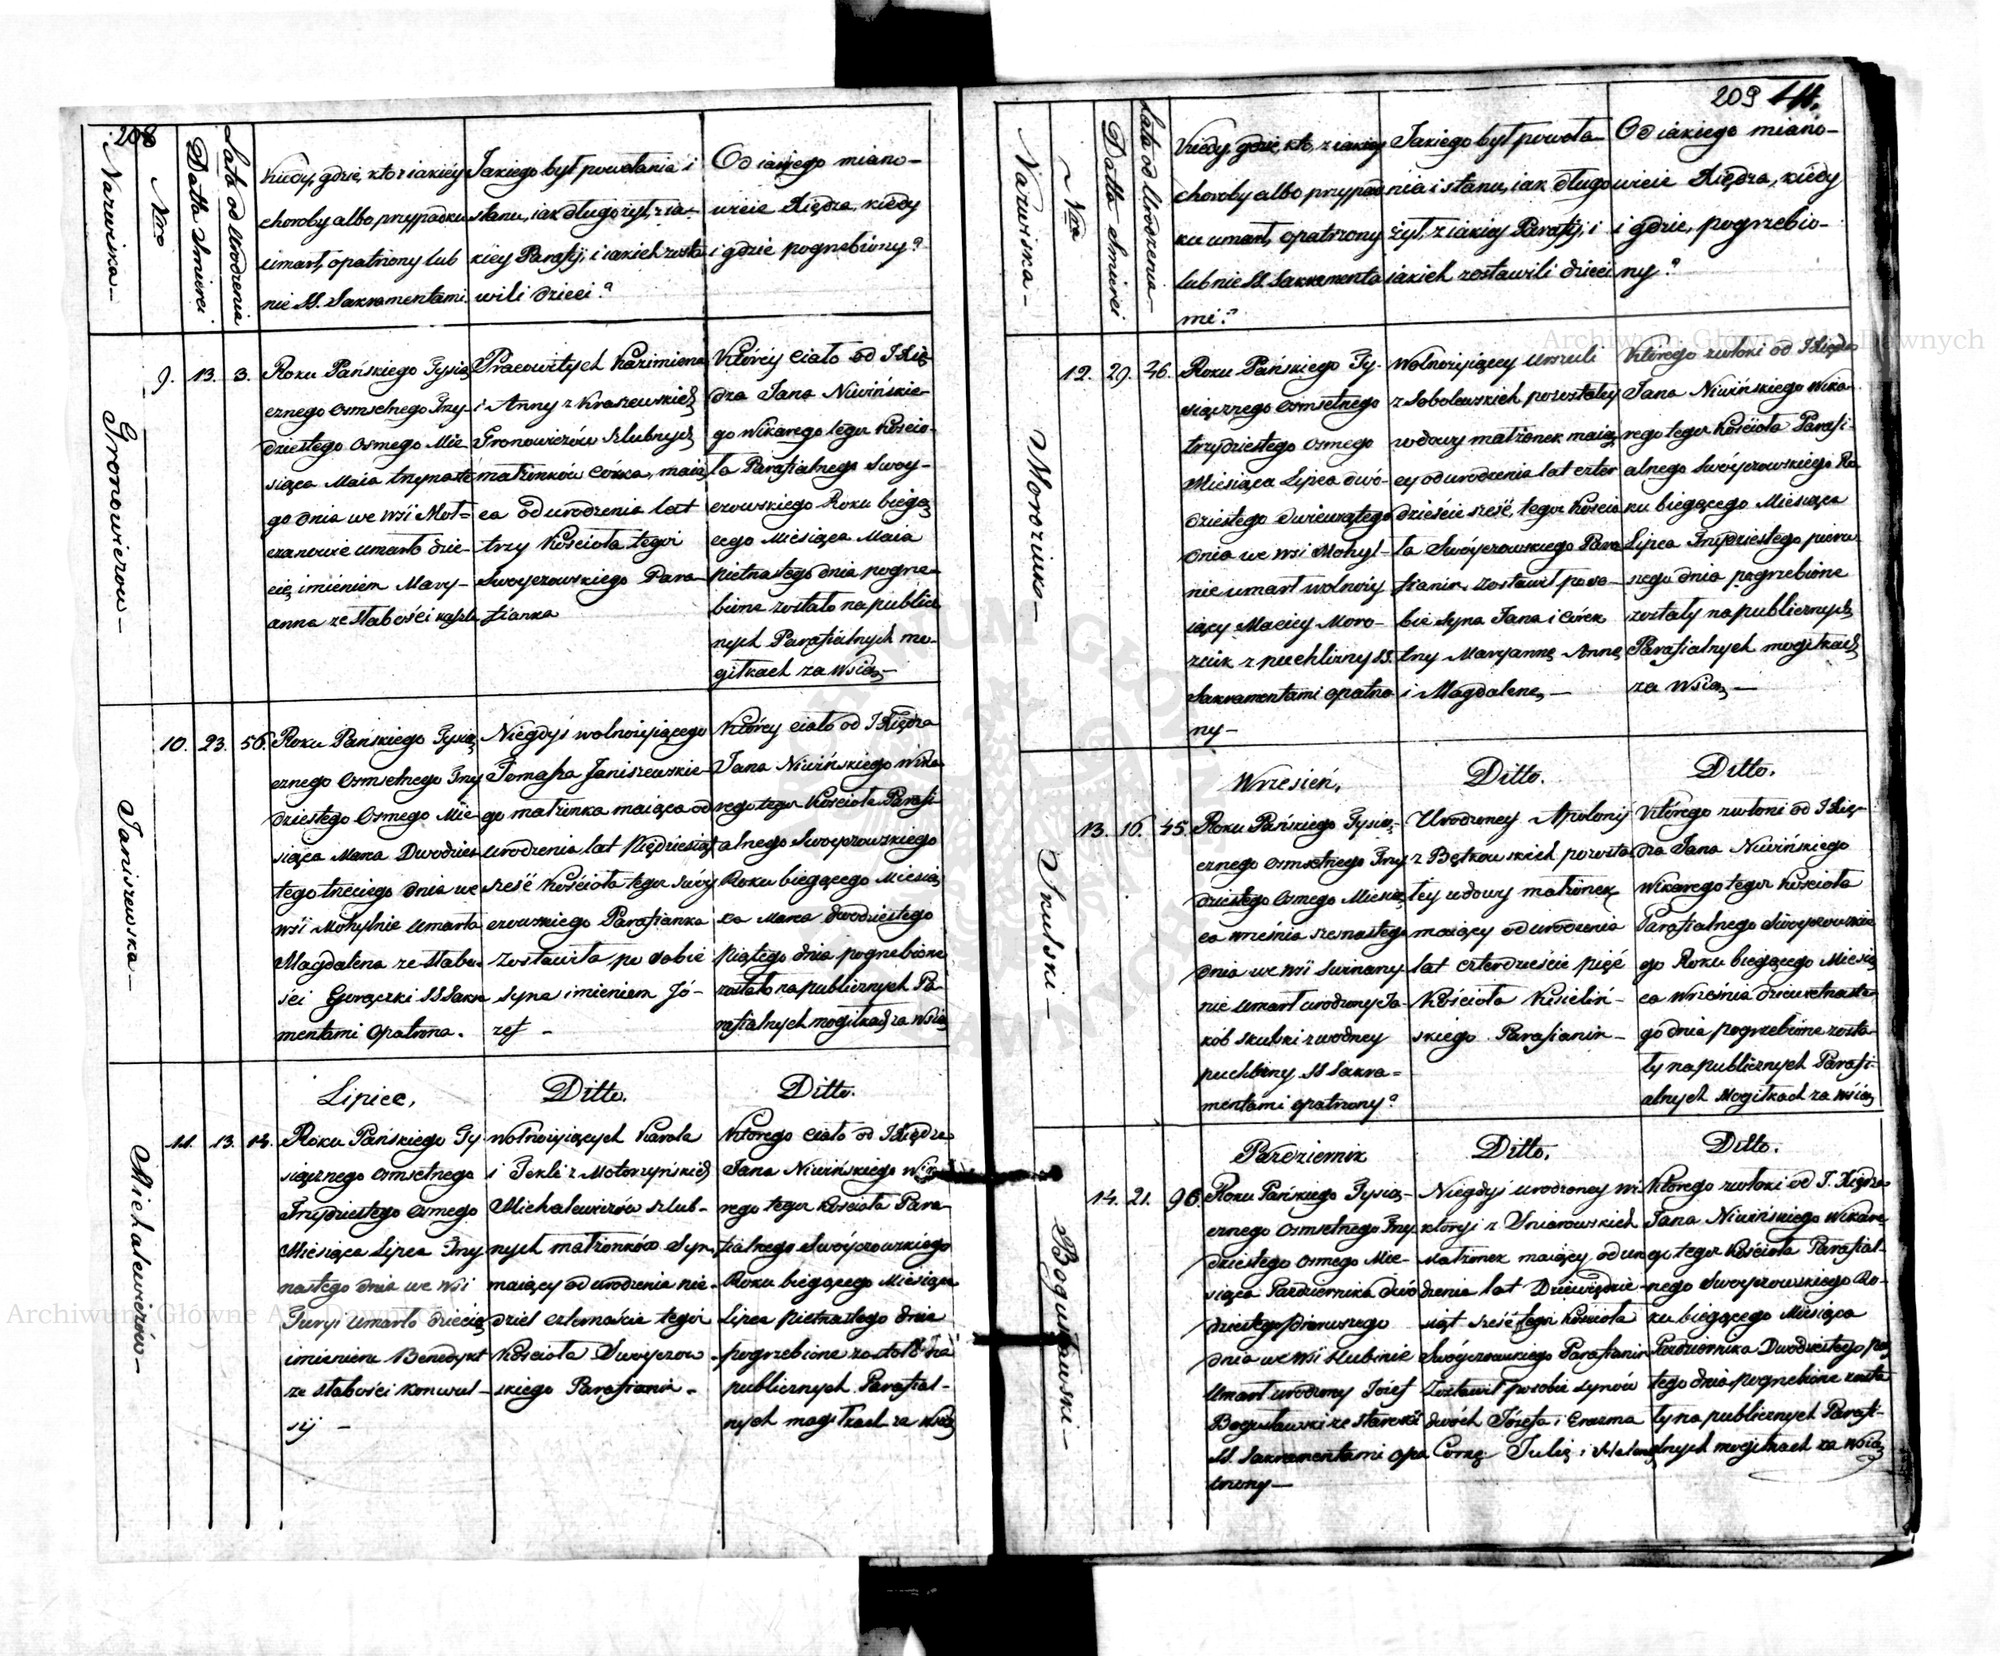 208
Nazwiska –
Nro
Datta Smierci
Lata od Urodzenia
Kiedy, gdzie, kto z iakiéy
choroby albo przypadku
umarł, opatrzony lub
nie SS. Sakramentami
Jakiego był powołania i
stanu, iak długo żył, z ia-
kiéy Parafij, i iakich zosta
wili dzieci?
Od iakiego miano-
wicie Xiędza, kiedy
i gdzie pogrzebiony?
Gronowiczow –
9. 13. 3.
Roku Pańskiego Tysią
cznego Osmsetnego Trzy
dziestego Osmego Mie-
siąca Maia trzynaste
go dnia we Wsi
umarło dzie-
cię imieniem Mary-
anna ze Słabości
Pracowitych Kazimierza
i Anny z Kraszewskich
Gronowiczów Szlubnych
małżonków Córka, maią
ca Od urodzenia lat
trzy Kościoła tegoż
Swoyczowskiego Para-
fianka
Któréy Ciało od JXię
dza Jana Niwińskie-
go Wikarego tegoż Kościo-
ła Parafialnego Swoy-
czowskiego Roku bieżą
cego Miesiąca Maia
Piętnastego dnia pogrze-
bione zostało na publicz
nych Parafialnych mo-
giłkach za Wsią –
Janiszewska –
10. 23. 56.
Roku Pańskiego Tysią
cznego Osmsetnego Trzy
dziestego Osmego Mie-
siąca Marca Dwudzies
tego trzeciego dnia we
wsi Mohylnie Umarła
Magdalena ze Słabo-
ści Gorączki SS Sakra
mentami Opatrzona.
Niegdyś wolnoiyiącego
Tomasza Janiszewskie-
go małżonka maiąca od
urodzenia lat Pięćdziesiąt
sześć Kościoła tegoż Swóy
czowskiego Parafianka
Zostawiła po Sobie
Syna imieniem Jó-
zef –
Któréy ciało od JXiędza
Jana Niwińskiego Wika
rego tegoż Kościoła Parafi-
alnego Swoyczowskiego
Roku bieżącego Miesią
ca Marca dwudziestego
Piątego dnia pogrzebione
zostało na publicznych Pa-
rafialnych mogiłkach za Wsią
Lipiec,
Ditto.
Ditto.
Michalewiczów –
11. 13. 14.
Roku Pańskiego Ty
siącznego Osmsetnego
Trzydziestego Osmego
Miesiąca Lipca Trzy
nastego dnia we Wsi
umarło dziecię
imieniem Benedykt
ze słabości Konwul-
sij –
Wolnoiyiących Karola
i Tekli z Motorzyńskich
Michalewiczów szlub-
nych małżonków Syn
maiący od urodzenia nie-
dziel czternaście tegoż
Kościoła Swoyczow-
skiego Parafianin –
Którego ciało od JXiędza
Jana Niwińskiego Wika
rego tegoż Kościoła Para-
fialnego Swóyczowskiego
Roku bieżącego Miesiąca
Lipca Piętnastego dnia
pogrzebione zostało na
publicznych Parafial-
nych mogiłkach za Wsią
209
Nazwiska –
Nro
Datta Smierci
Lata od Urodzenia –
Kiedy, gdzie, kto, z iakiey
choroby albo przypad
ku umarł, opatrzony
lub nie SS. Sakramenta
mi?
Jakiego był powoła-
nia i stanu, iak długo
żył, z iakiey Parafij, i
iakich zostawili dzieci
Od iakiego miano-
wicie Xiędza, kiedy
i gdzie, pogrzebio-
ny?
Morozeuko –
12. 29. 46.
Roku Pańskiego Ty-
siącznego Osmsetnego
trzydziestego Osmego
Miesiąca Lipca dwó-
dziestego dwiewiątego
dnia we Wsi Mohyl-
nie umarł wolnoiy
iący Maciey Moro-
zeuk z puchliny SS.
Sakramentami opatrzo
ny –
Wolnoiyiącey Urszuli
z Sobolewskich pozostałey
wdowy małżonek maią
cy od urodzenia lat czter
dzieście sześć, tegoż Kościo
ła Swóyczowskiego Para
fianin. zostawił po so-
bie syna Jana i córek
trzy Maryannę Annę
i Magdalenę –
Którego zwłoki od JXiędza
Jana Niwińskiego Wika-
rego tegoż Kościoła Parafi-
alnego Swóyczowskiego Ro-
ku bieżącego Miesiąca
Lipca Trzydziestego pierw-
szego dnia pogrzebione
zostały na publicznych
Parafialnych mogiłkach
za Wsią –
Wrzesień,
Ditto.
Ditto.
Skulski –
13. 16. 45.
Roku Pańskiego Tysią-
cznego Osmsetnego Trzy
dziestego Osmego Miesią
ca Września szesnastego
dnia we Wsi Swinary
nie Umarł urodzony Ja-
kób Skulski z wodney
puchliny SS Sakra-
mentami opatrzony?
Urodzoney Apolonij
z Bętkowskich pozosta
łey wdowy małżonek
maiący od urodzenia
lat czterdzieście pięć
Kościoła Kisieliń-
skiego Parafianin –
Którego zwłoki od JXię-
dza Jana Niwińskiego
Wikarego tegoż Kościoła
Parafialnego Swoyczowskie
go Roku bieżącego Miesią
ca Września dziewiętnaste
go dnia pogrzebione zosta-
ły na publicznych Parafi-
alnych Mogiłkach za Wsią
Pazdziernik
Ditto.
Ditto.
Bogusławski –
14. 21. 96.
Roku Pańskiego Tysią-
cznego Osmsetnego Trzy
dziestego Osmego Mie-
siąca Pazdziernika dwó
dziestego pierwszego
dnia we Wsi Hlubinie
Umarł urodzony Józef
Bogusławski ze starości
SS. Sakramentami opa
trzony –
Niegdyś urodzoney Wi
ktoryi z Sniarowskich
Małżonek maiący od uro
dzenia lat Dziewiędzie-
siąt sześć tegoż Kościoła
Swóyczowskiego Parafianin
Zostawił po sobie synów
dwóch Józefa i Erazma
Corkę Julię i Helenę
Którego zwłoki od J. Xiędza
Jana Niwińskiego Wikare
go tegoż Kościoła Parafial-
nego Swoyczowskiego Ro-
ku bieżącego Miesiąca
Pazdziernika Dwudziestego pią
tego dnia pogrzebione zosta
ły na publicznych Parafi-
alnych mogiłkach za Wsią
Archiwum Główne Akt Dawnych
Archiwum Główne Akt Dawnych